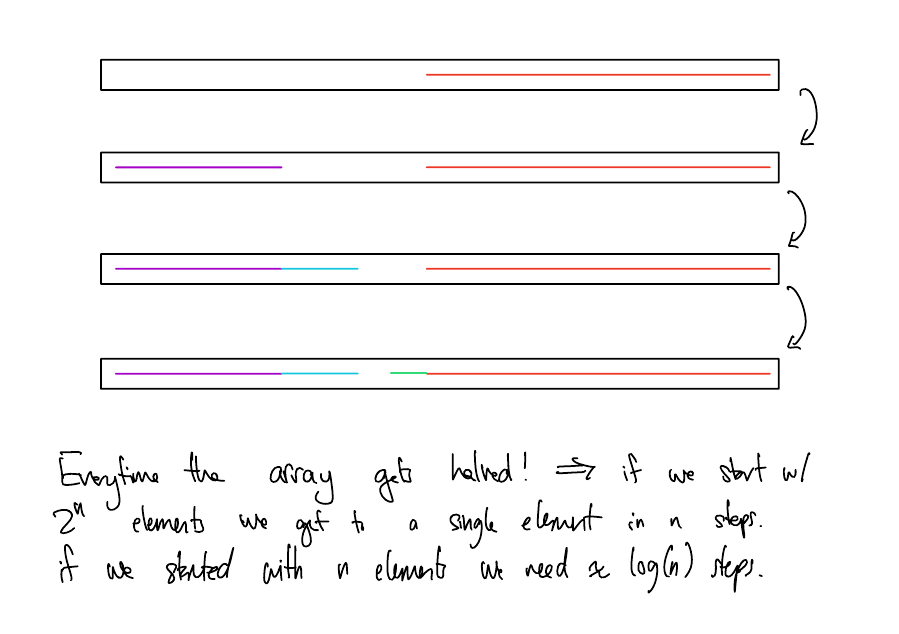 Everytime the array gets halved! ⇒ if we start w/
2ⁿ elements we get to a single element in n steps.
if we started with n elements we need ≈ log(n) steps.